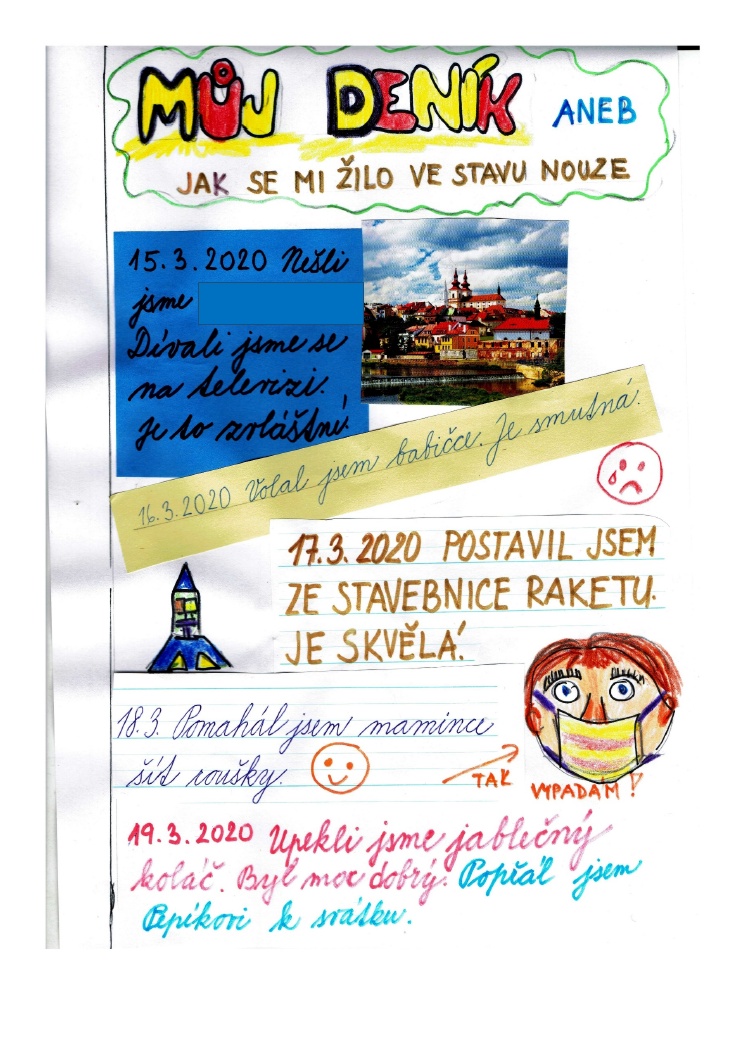 MŮJ DENÍK ANEB
JAK SE MI ŽILO VE STAVU NOUZE
15.3.2020 Nešli
jsme
Dívali jsme se
na televizi.
Je to zvláštní.
16.3.2020 Volal jsem babičce. Je smutná.
17.3.2020 POSTAVIL JSEM
ZE STAVEBNICE RAKETU.
JE SKVĚLÁ.
18.3. Pomáhál jsem mamince
šít roušky.
TAK VYPADÁM!
19.3.2020 Upekli jsme jablečný
koláč. Byl moc dobrý. Popřál jsem
Pepíkovi k svátku.